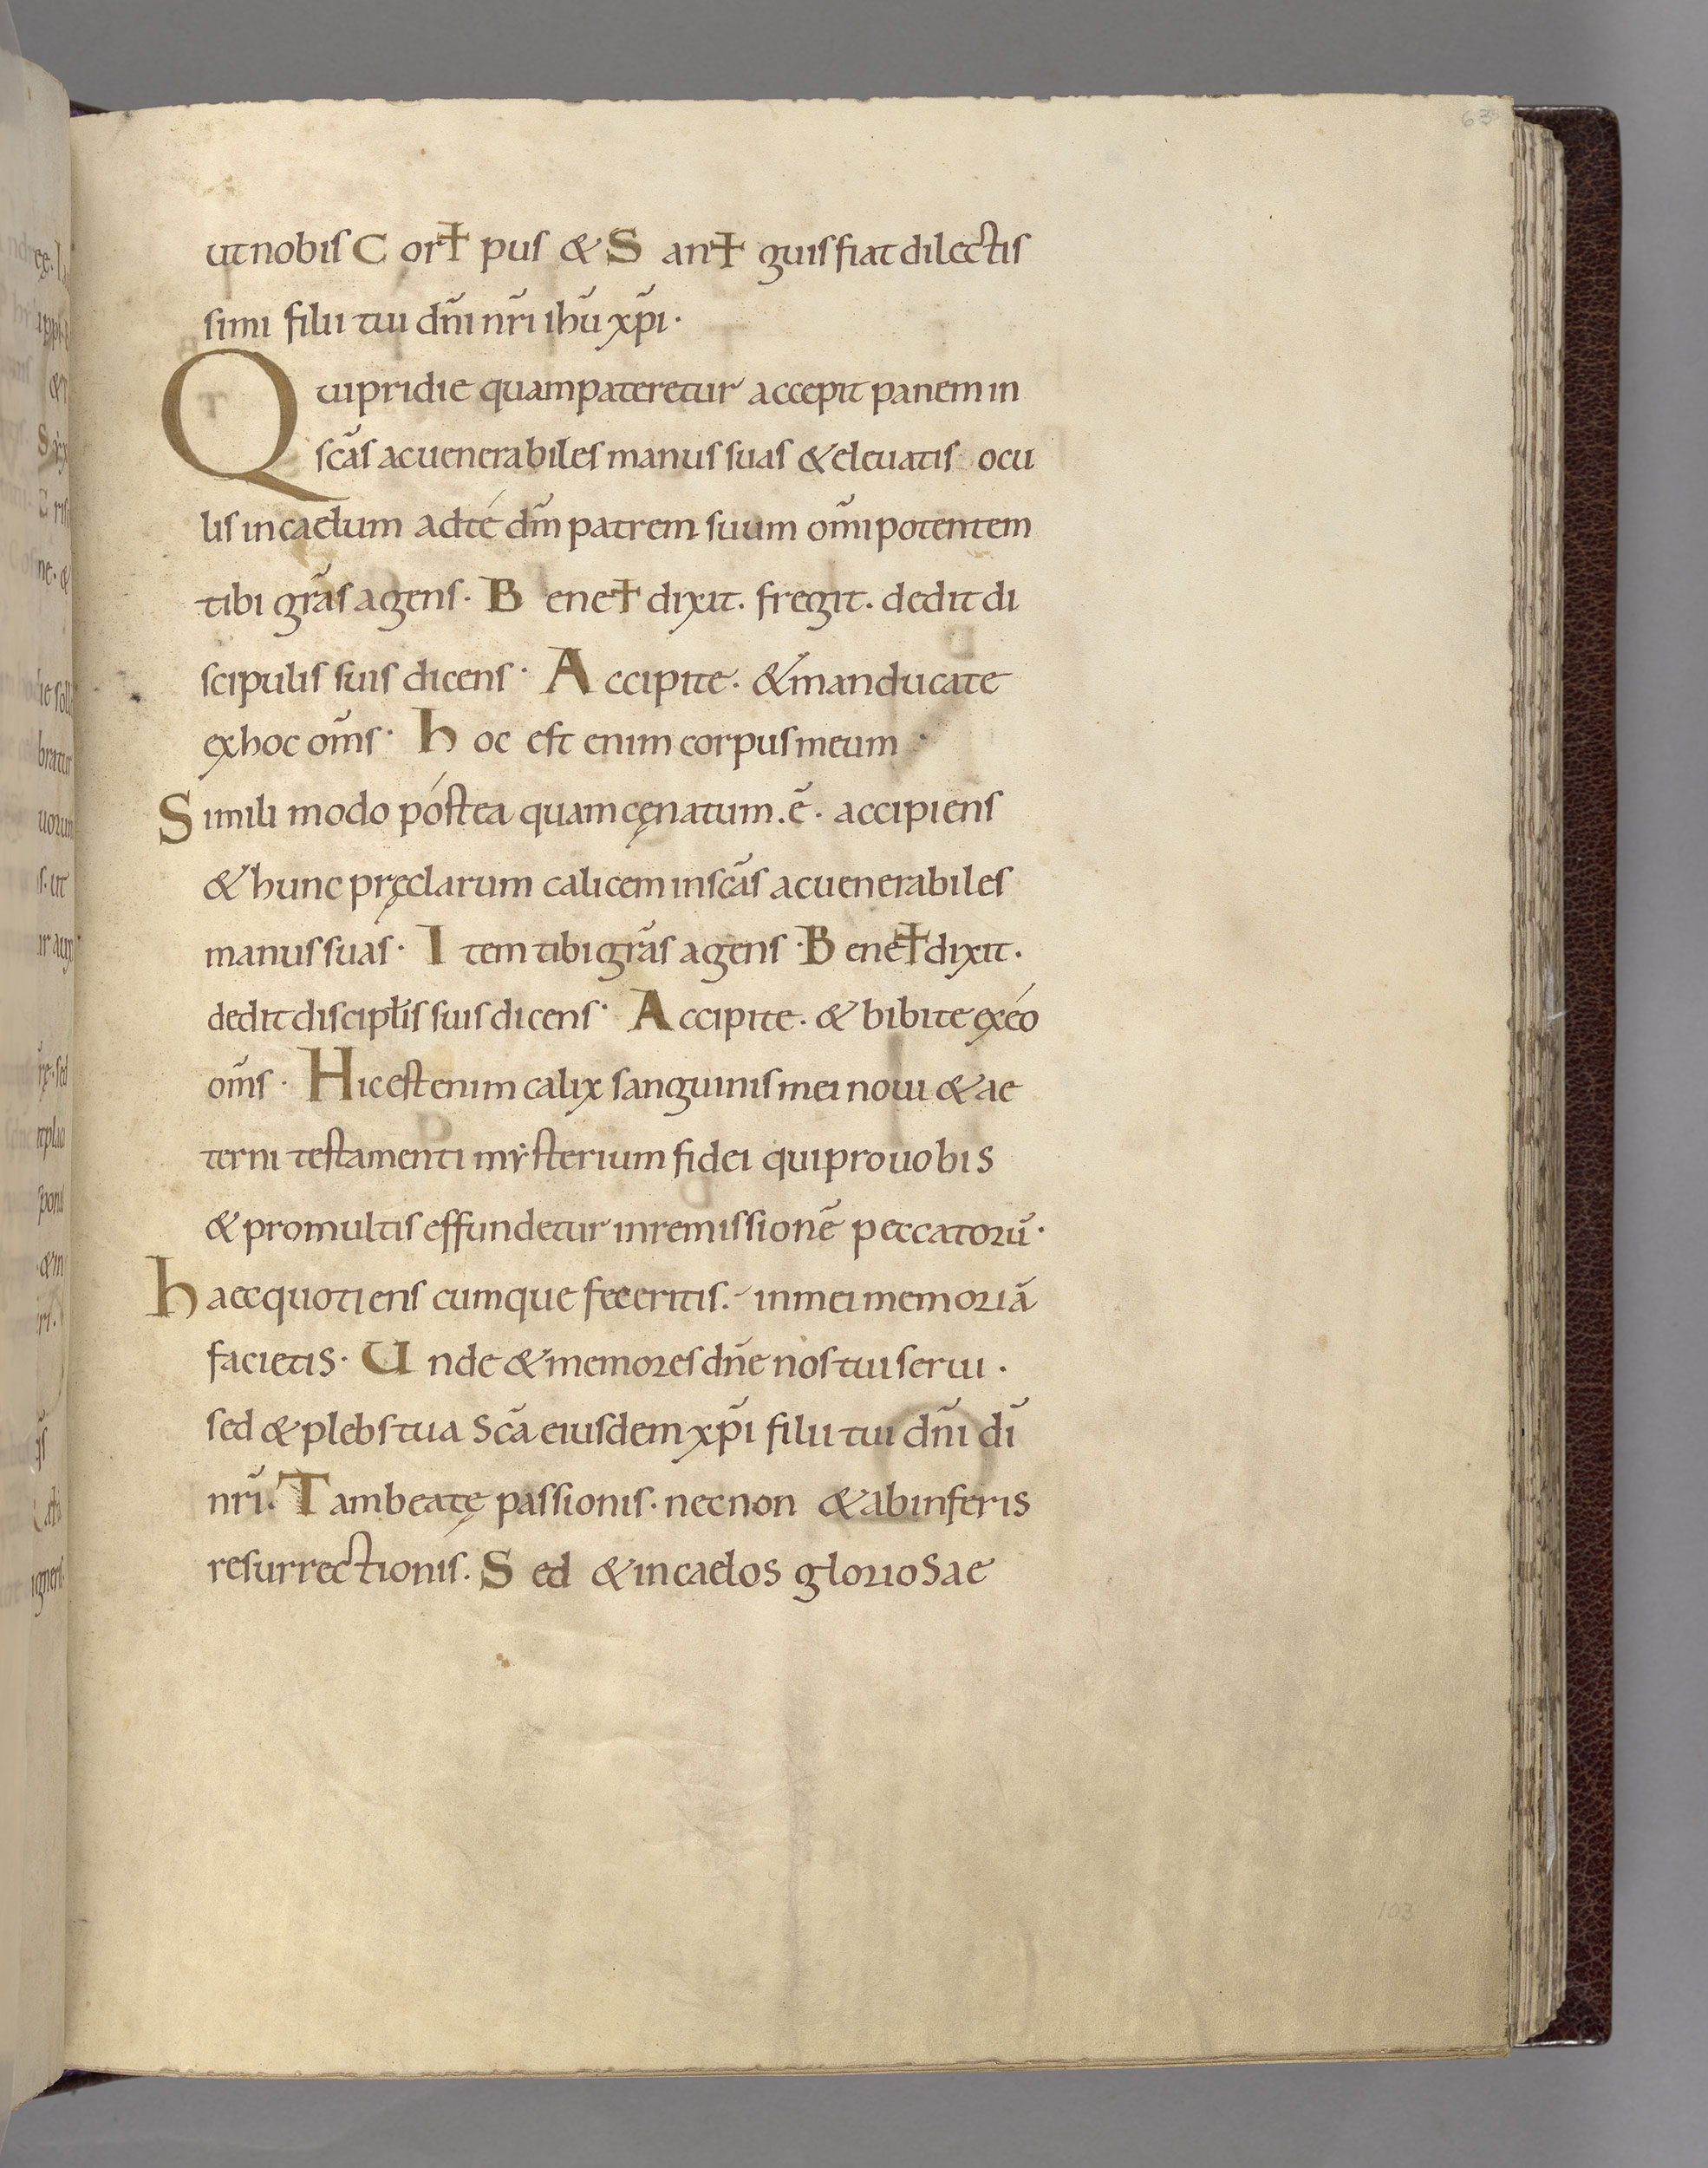 63
ut nobis C or✝ pus & S an✝ guis fiat dilectis
simi filii tui dn̄i nr̄i ihū xp̄i·
Qui pridie quam pateretur accepit panem in
scās ac uenerabiles manus suas & eleuatis ocu
lis in caelum ad té dm̄ patrem suum om̄ipotentem
tibi grās agens· B ene✝ dixit. fregit. dedit di
scipulis suis dicens· Accipite· & manducate
ex hoc om̄s· hoc est enim corpus meum·
Simili modo póstea quam cęnatum .ē· accipiens
& hunc pręclarum calicem in scās ac uenerabiles
manus suas· Item tibi grās agens· Bene✝dixit.
dedit discipłis suis dicens· Accipite· & bibite ex éo
om̄s· Hic est enim calix sanguinis mei noui & ae
terni testamenti mẏsterium fidei qui pro uobis
& pro multis effundetur in remissionē peccatorū·
haec quotienscumque feceritis.· in mei memoriā
facietis· Unde & memores dn̄e nos tui serui·
sed & plebs tua scā eiusdem xp̄i filii tui dn̄i dī
nr̄i· Tam beatę passionis· nec non & ab inferis
resurrectionis. Sed & in caelos gloriosae
103